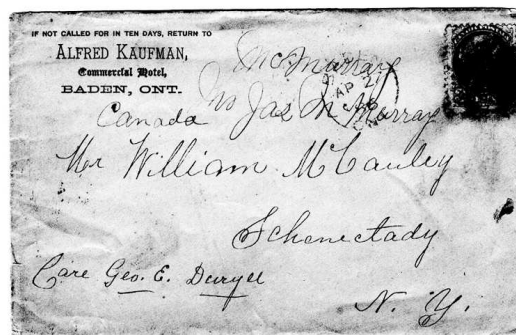 IF NOT CALLED FOR IN TEN DAYS, RETURN TO
ALFRED KAUFMAN,
Commercial Hotel,
BADEN, ONT.
McMurray
AP 2
Jas McMurray
Canada
Mr William McCauley
Schenectady
Care Geo. E. Duryee
N. Y.